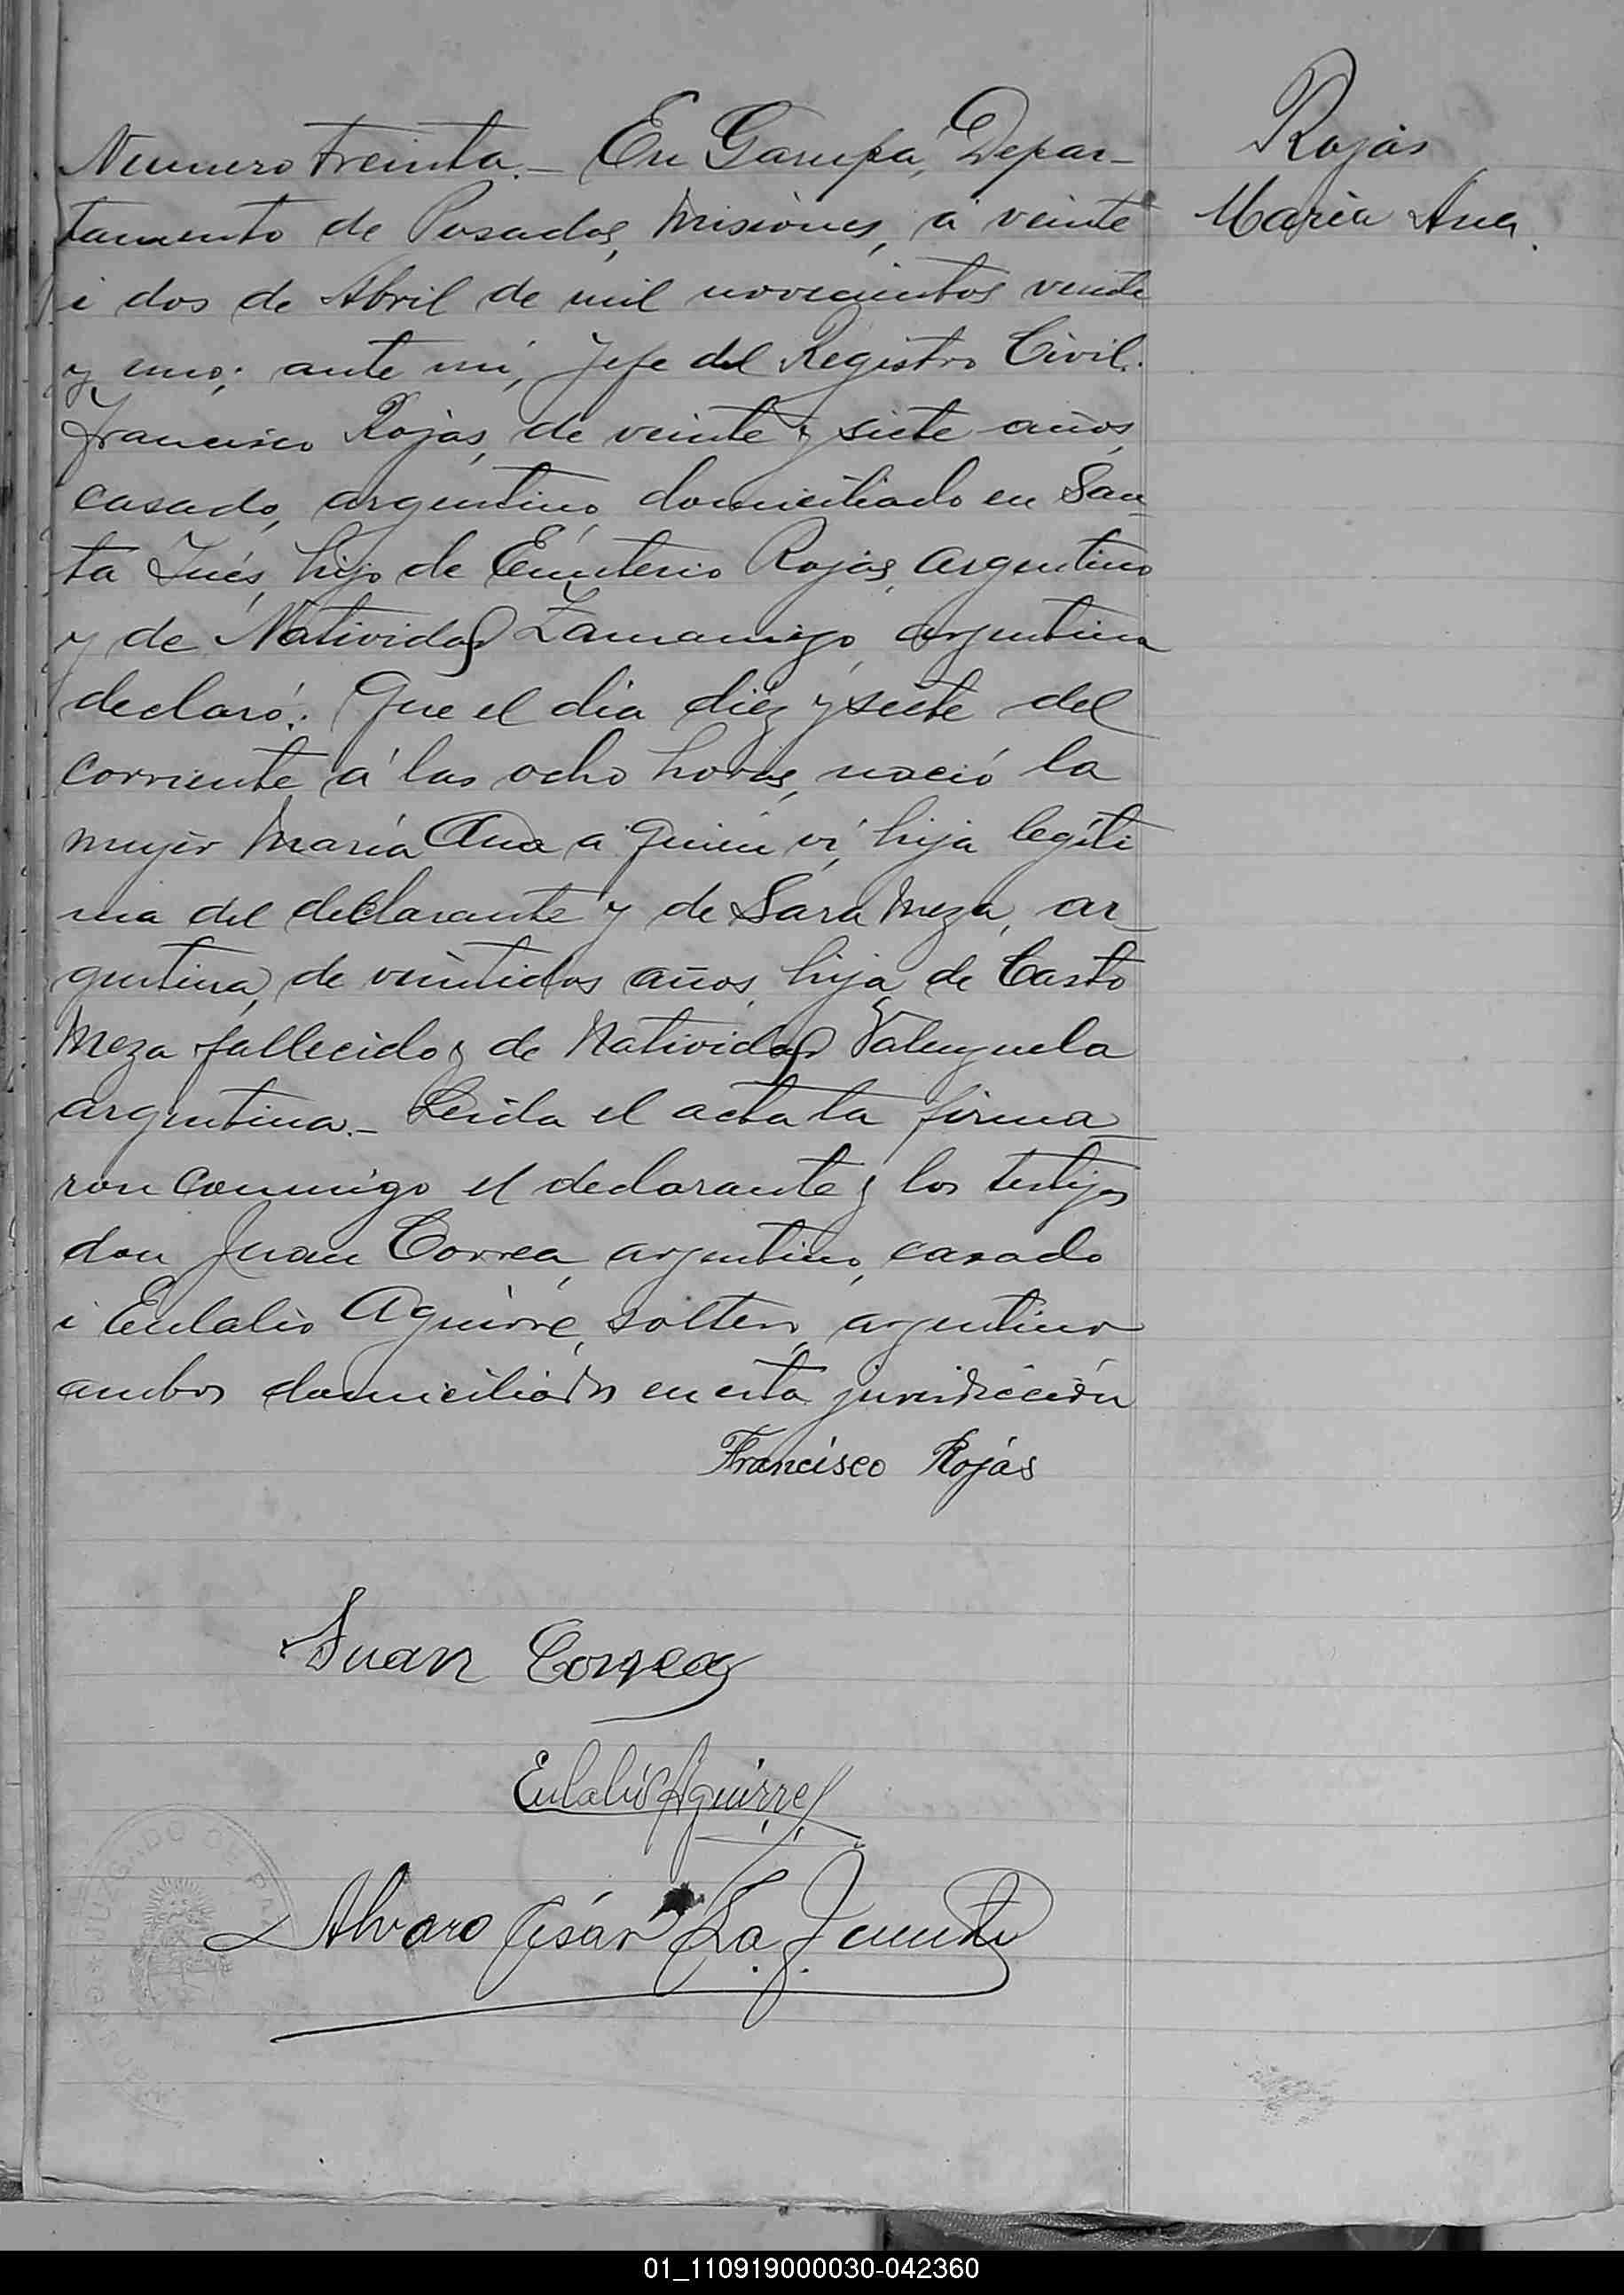 Rojas
Maria Ana.
Numero treinta.- En Garupá, Depar-
tamento de Posadas, Misiones, á veinte
i dos de Abril de mil novecientos veinte
y uno; ante mi, Jefe del Registro Civil.
Francisco Rojas, de veinte y siete años,
casado, argentino, domiciliado en San-
ta Inés, hijo de Eleuterio Rojas, argentino
y de Natividad argentina
declaró: Que el dia diez y siete del
corriente á las ocho horas, nació la
mujer María Ana a quien vi, hija legíti
ma del declarante y de Sara Meza, ar-
gentina, de veintidos años, hija de Casto
Meza fallecido y de Natividad Valenzuela
argentina.- Leida el acta la firma-
ron conmigo el declarante y los testigos
don Juan Correa, argentino, casado
i Eulalio Aguirre, soltero, argentino
ambos domiciliados en esta jurisdicción
Francisco Rojás
Juan Correa
Eulalio Aguirre
Alvaro César La Fuente
JUZGADO DE PAZ
01_110919000030-042360